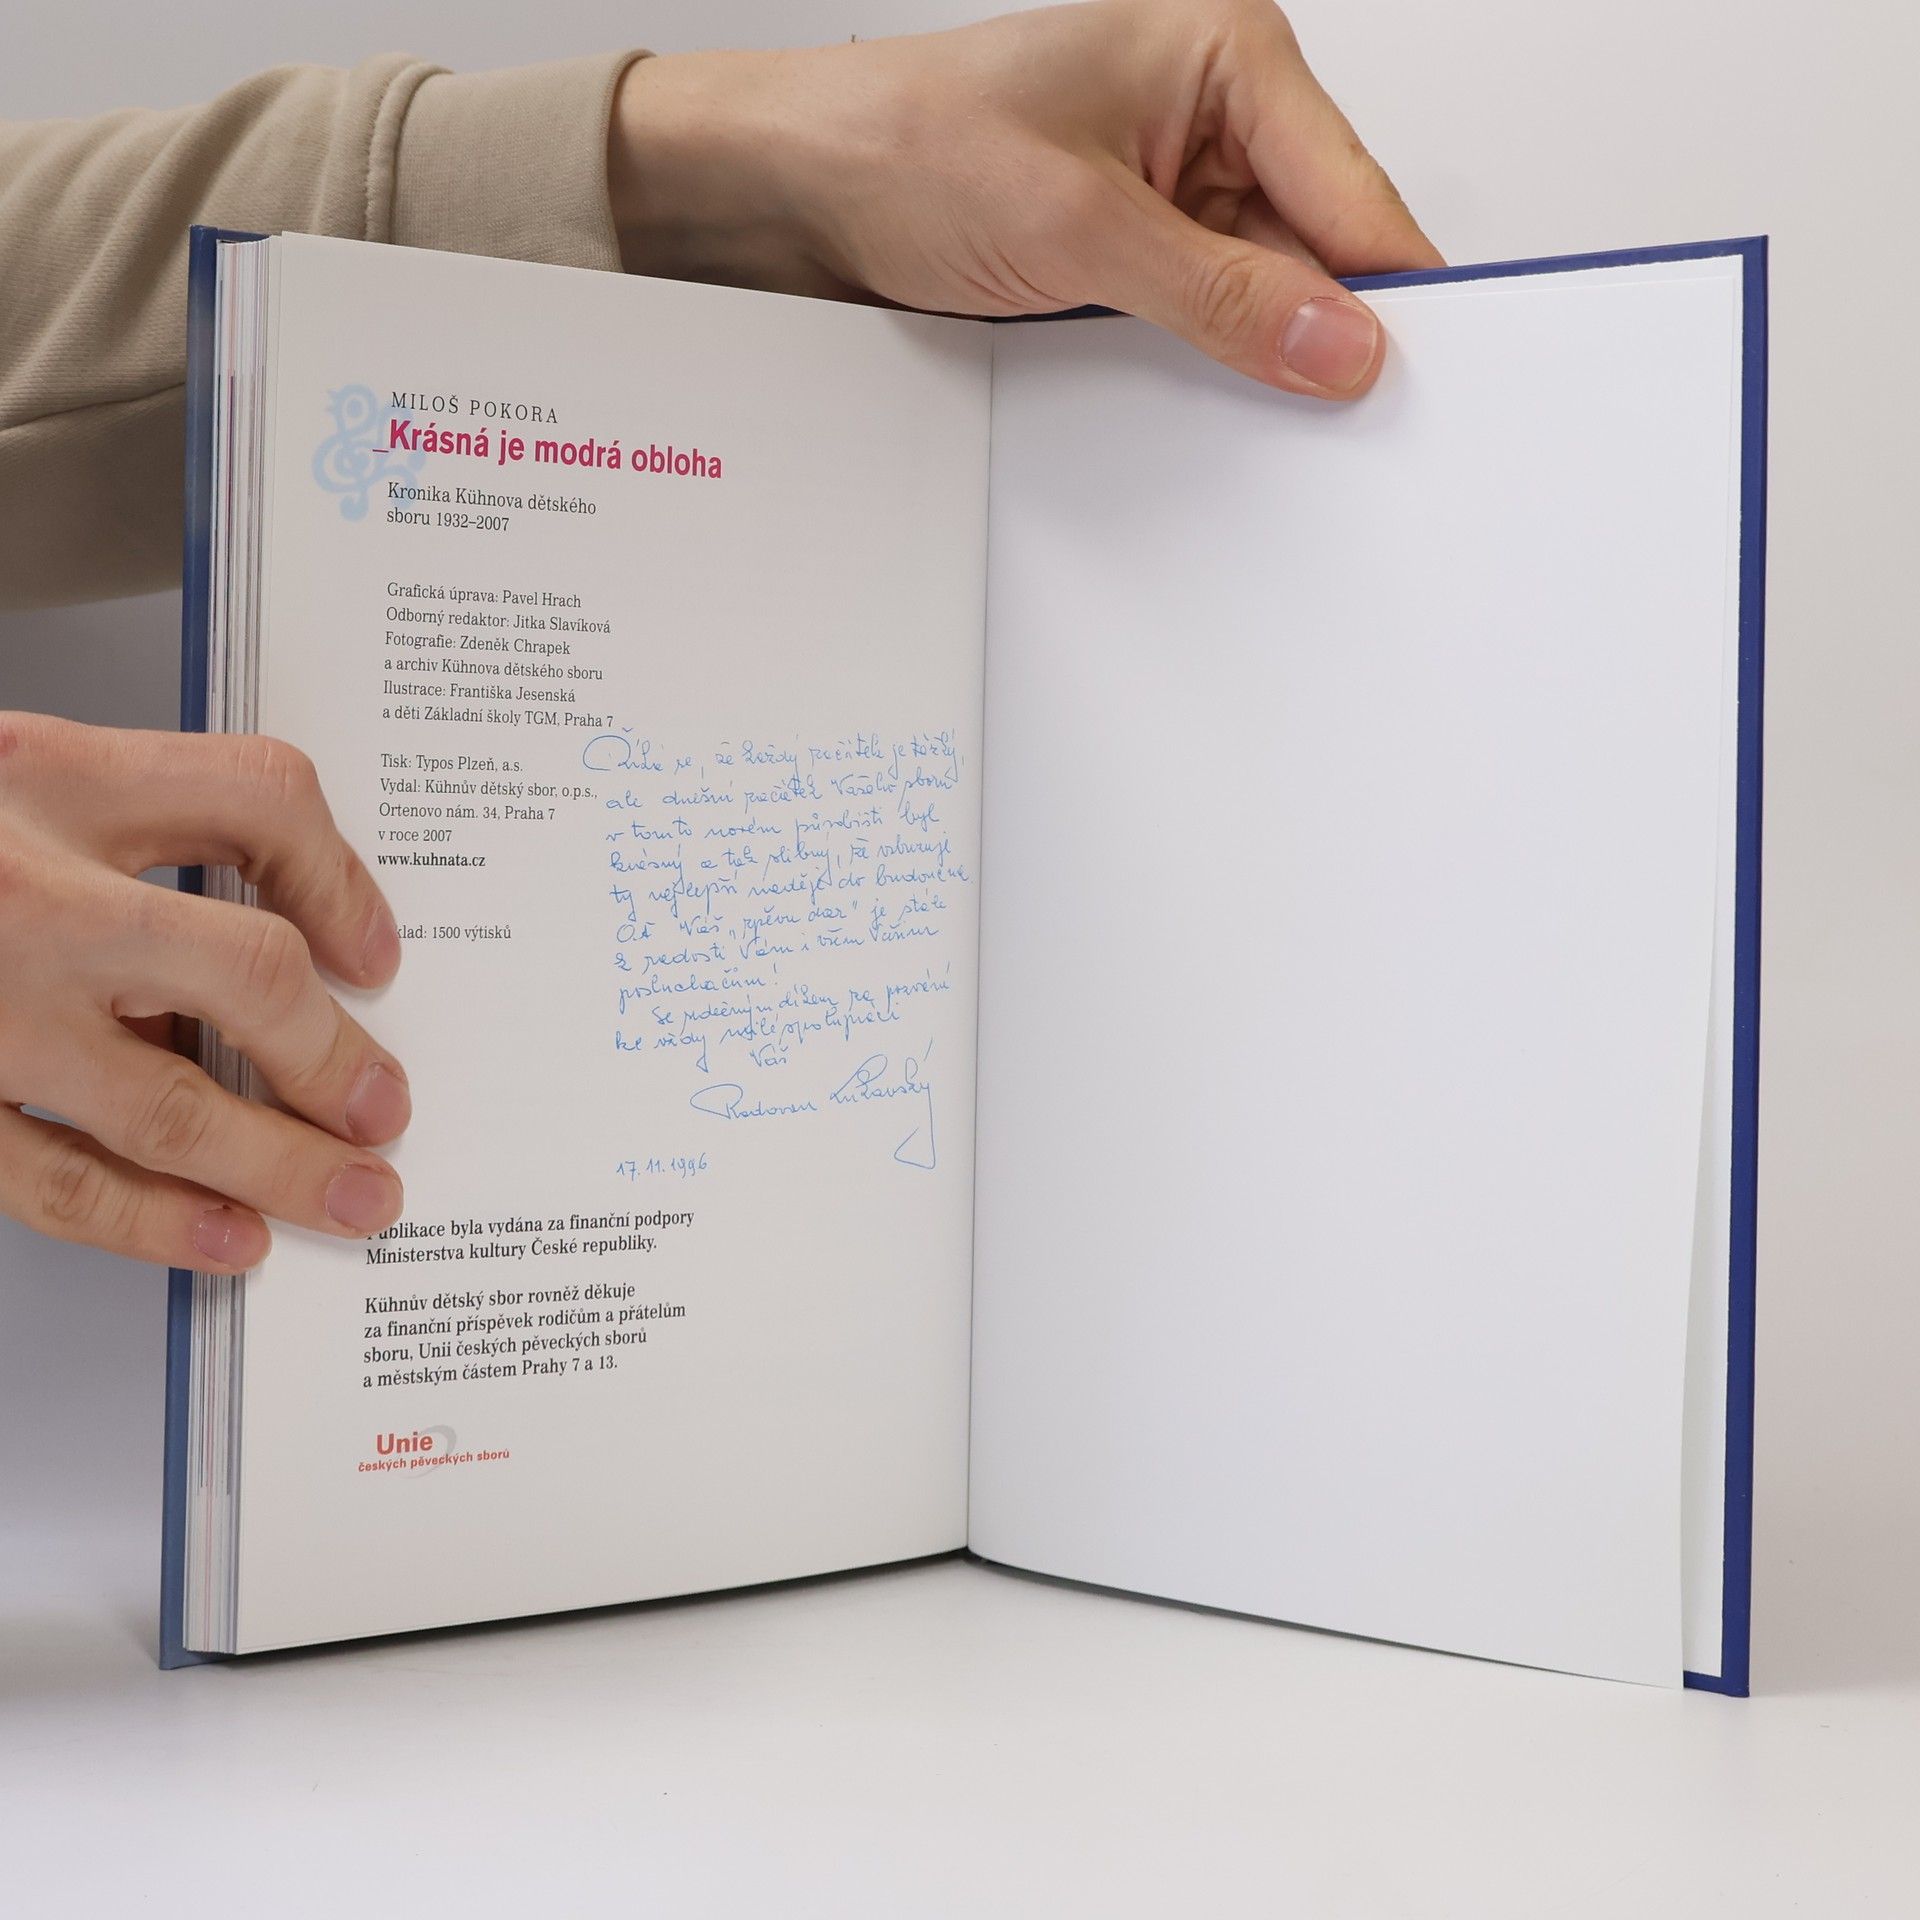 MILOŠ POKORA
_Krásná je modrá obloha
Kronika Kühnova dětského
sboru 1932–2007
Grafická úprava: Pavel Hrach
Odborný redaktor: Jitka Slavíková
Fotografie: Zdeněk Chrapek
a archiv Kühnova dětského sboru
Ilustrace: Františka Jesenská
a děti Základní školy TGM, Praha 7
Tisk: Typos Plzeň, a.s.
Vydal: Kühnův dětský sbor, o.p.s.,
Ortenovo nám. 34, Praha 7
v roce 2007
www.kuhnata.cz
klad: 1500 výtisků
Říká se, že každý začátek je těžký,
ale dnešní začátek Vašeho sboru
v tomto novém působišti byl
krásný a tak slibný, že vzbuzuje
ty nejlepší naděje do budoucna.
Ať Váš „zpěvu dar" je stále
k radosti Vám i všem Vašim
posluchačům!
Se srdečným díkem za pozvání
ke vždy milé spolupráci
Váš
Radovan Lukavský
17. 11. 1996
Publikace byla vydána za finanční podpory
Ministerstva kultury České republiky.
Kühnův dětský sbor rovněž děkuje
za finanční příspěvek rodičům a přátelům
sboru, Unii českých pěveckých sborů
a městským částem Prahy 7 a 13.
Unie
českých pěveckých sborů